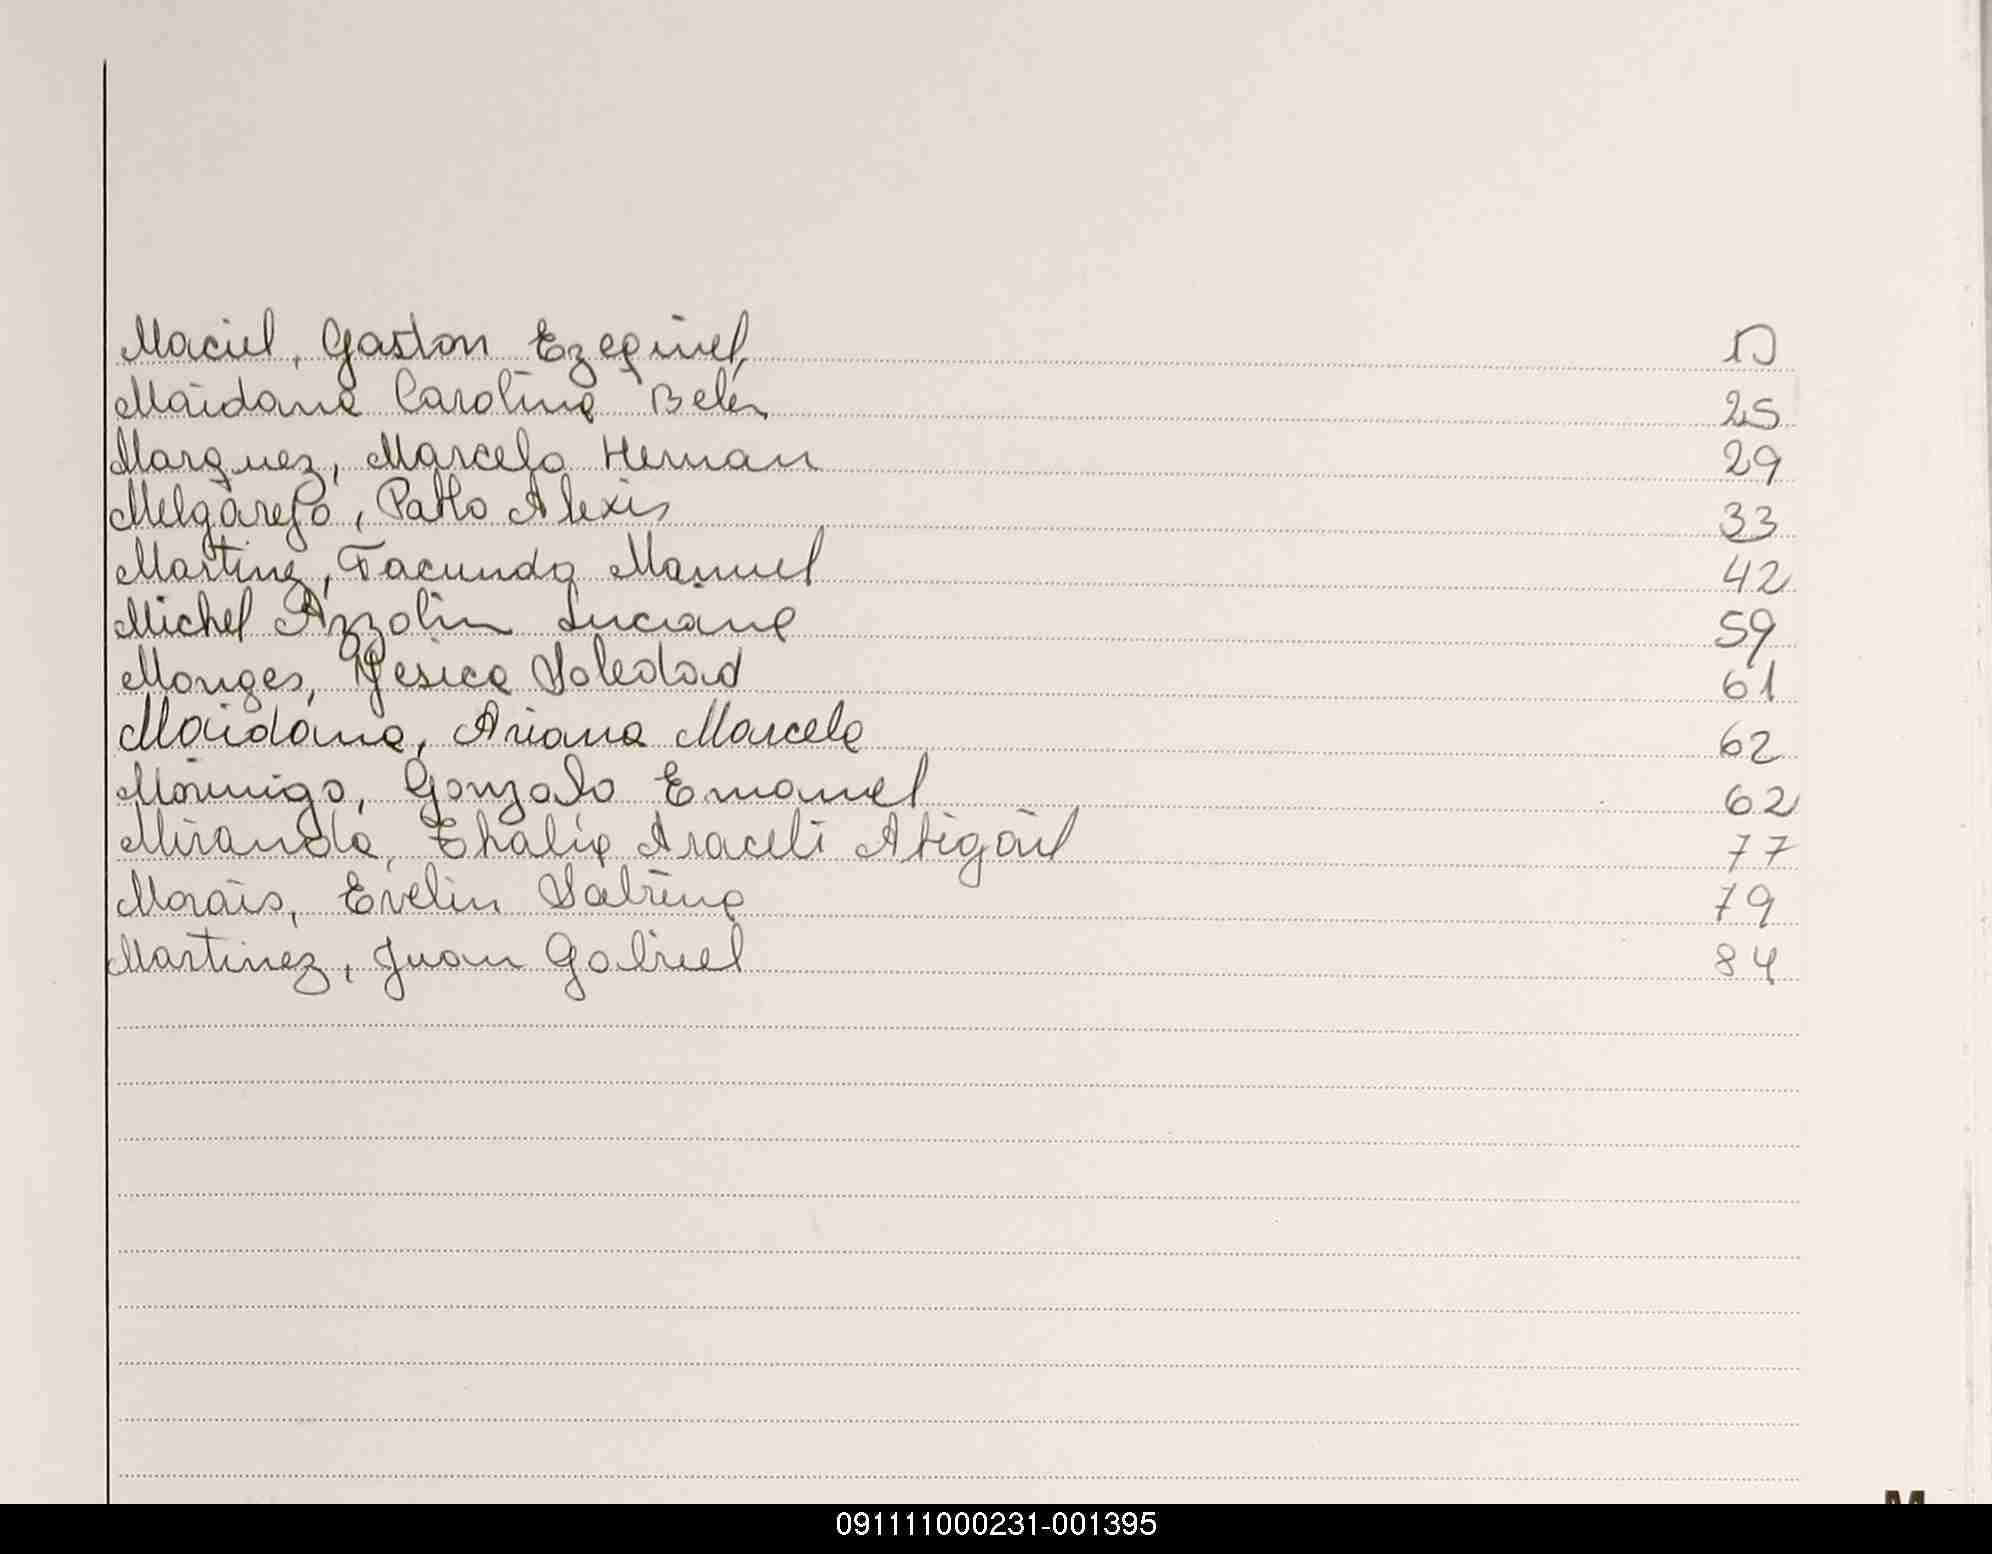 Maciel, Gaston Ezequiel,
Maidana Carolina Belén 25
Marquez, Marcelo Hernan 29
Melgarejo, Pablo Alexis 33
Martinz, Facundo Manuel 42
Michel Azzolin Luciana 59
Monges, Yesica Soledad 61
Maidana, Ariana Marcela 62
Morinigo, Gonzalo Emanuel 62
Miranda, Thalia Araceli Abigail 77
Morais, Evelin Sabrina 79
Martinez, Juan Gabriel 84
M
091111000231-001395